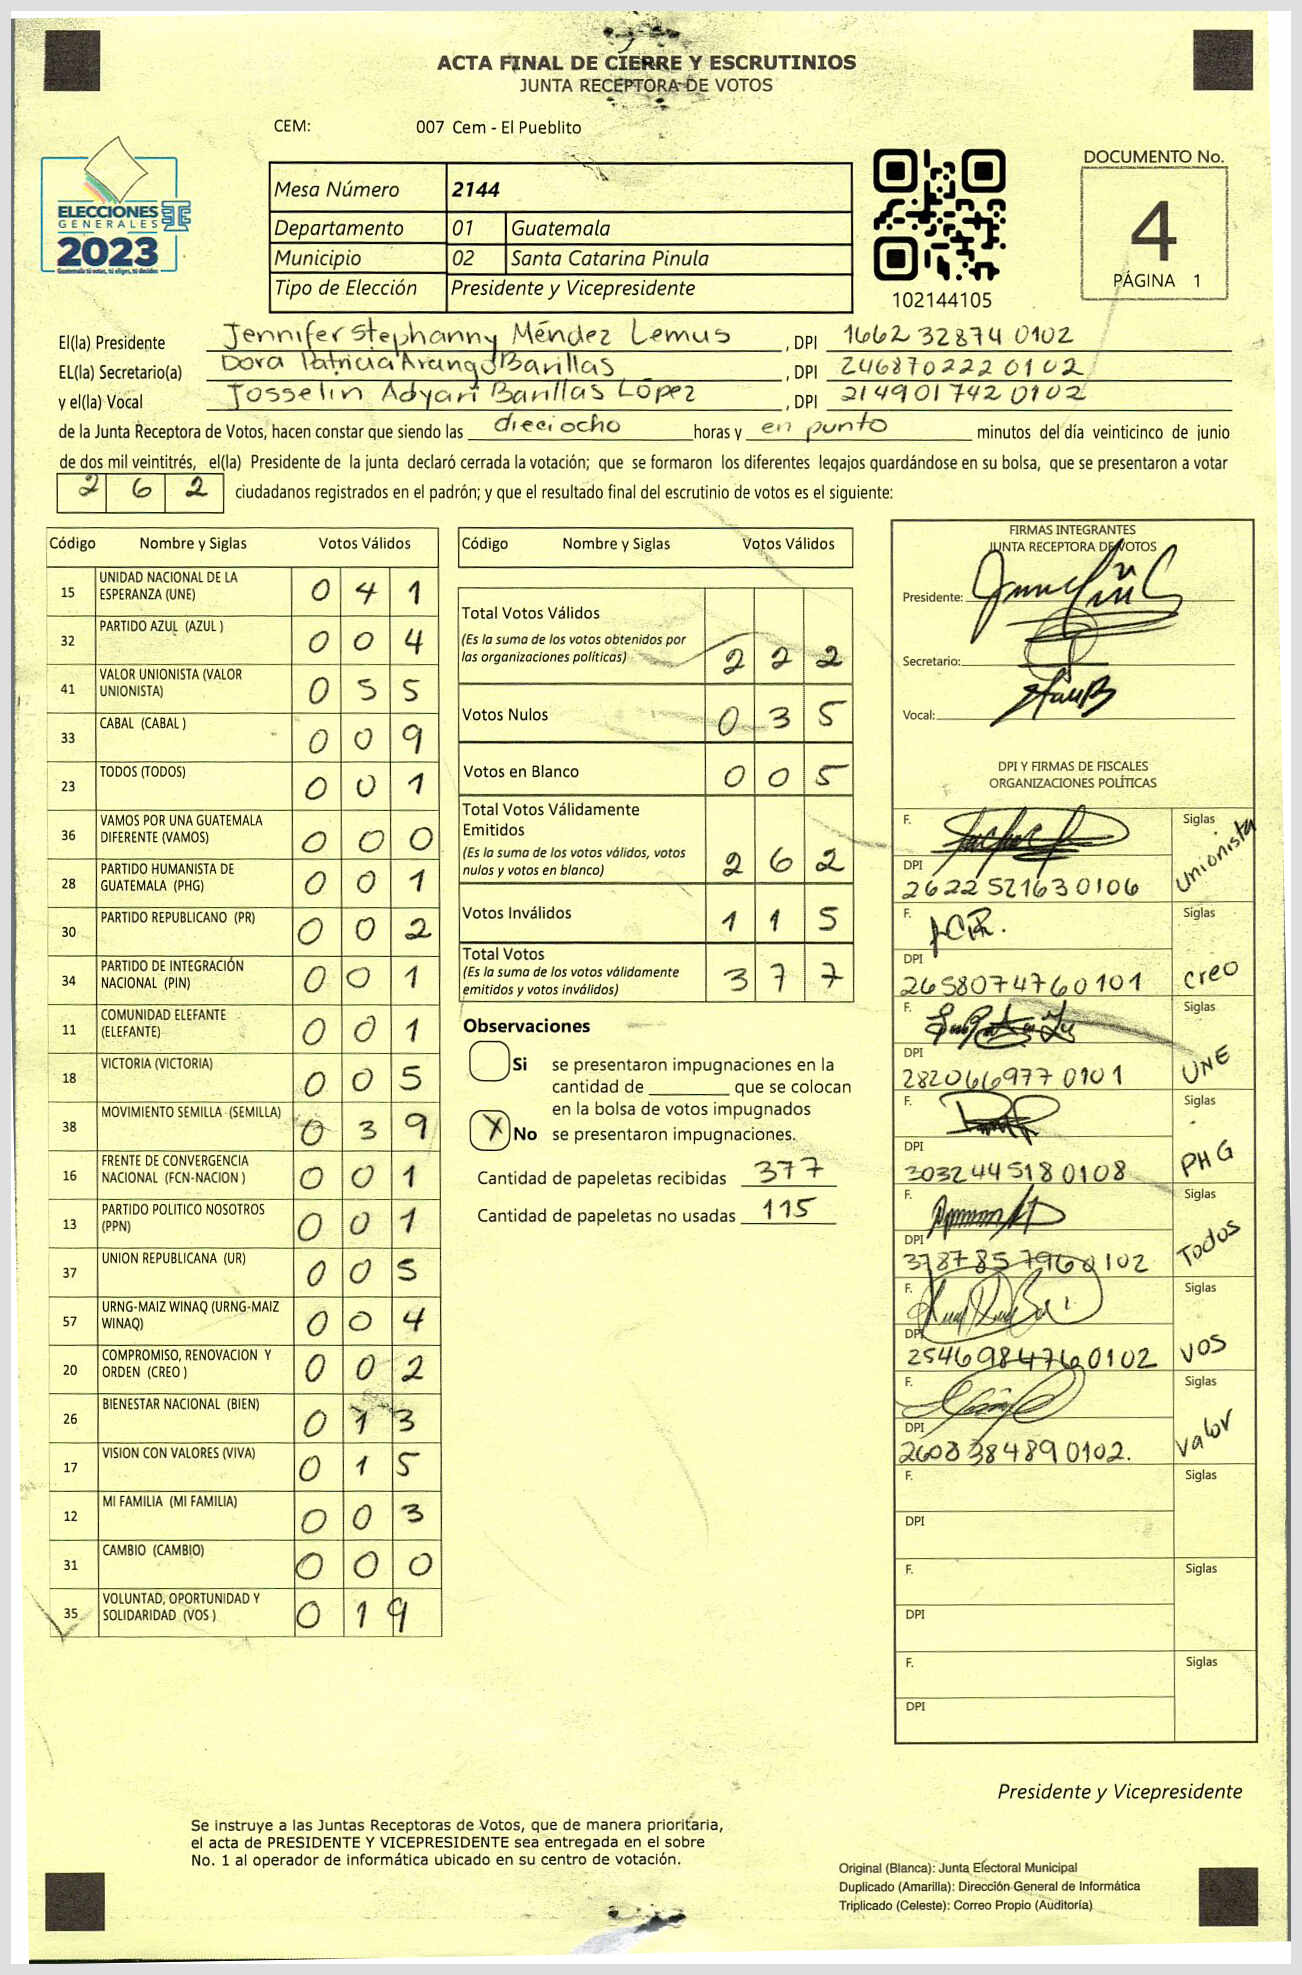 ACTA FINAL DE CIERRE Y ESCRUTINIOS
JUNTA RECEPTORA DE VOTOS
CEM: 007 Cem - El Pueblito
ELECCIONES
GENERALES
2023
Guatemala tú votas, tú eliges, tú decides
Mesa Número 2144
Departamento 01 Guatemala
Municipio 02 Santa Catarina Pinula
Tipo de Elección Presidente y Vicepresidente
102144105
DOCUMENTO No.
4
PÁGINA 1
El(la) Presidente Jennifer Stephanny Méndez Lemus, DPI 1662 32874 0102
EL(la) Secretario(a) Dora Patricia Arango Barillas, DPI 246870222 0102
y el(la) Vocal Josselin Adyari Barillas López, DPI 214901742 0102
de la Junta Receptora de Votos, hacen constar que siendo las dieciocho horas y en punto minutos del día veinticinco de junio
de dos mil veintitrés, el(la) Presidente de la junta declaró cerrada la votación; que se formaron los diferentes legajos guardándose en su bolsa, que se presentaron a votar
262 ciudadanos registrados en el padrón; y que el resultado final del escrutinio de votos es el siguiente:
Código Nombre y Siglas Votos Válidos
15 UNIDAD NACIONAL DE LA ESPERANZA (UNE) 041
32 PARTIDO AZUL (AZUL ) 004
41 VALOR UNIONISTA (VALOR UNIONISTA) 055
33 CABAL (CABAL ) 009
23 TODOS (TODOS) 001
36 VAMOS POR UNA GUATEMALA DIFERENTE (VAMOS) 000
28 PARTIDO HUMANISTA DE GUATEMALA (PHG) 001
30 PARTIDO REPUBLICANO (PR) 002
34 PARTIDO DE INTEGRACIÓN NACIONAL (PIN) 001
11 COMUNIDAD ELEFANTE (ELEFANTE) 001
18 VICTORIA (VICTORIA) 005
38 MOVIMIENTO SEMILLA (SEMILLA) 039
16 FRENTE DE CONVERGENCIA NACIONAL (FCN-NACION ) 001
13 PARTIDO POLITICO NOSOTROS (PPN) 001
37 UNION REPUBLICANA (UR) 005
57 URNG-MAIZ WINAQ (URNG-MAIZ WINAQ) 004
20 COMPROMISO, RENOVACION Y ORDEN (CREO ) 002
26 BIENESTAR NACIONAL (BIEN) 013
17 VISION CON VALORES (VIVA) 015
12 MI FAMILIA (MI FAMILIA) 003
31 CAMBIO (CAMBIO) 000
35 VOLUNTAD, OPORTUNIDAD Y SOLIDARIDAD (VOS ) 019
Código Nombre y Siglas Votos Válidos
Total Votos Válidos
(Es la suma de los votos obtenidos por
las organizaciones políticas) 222
Votos Nulos 035
Votos en Blanco 005
Total Votos Válidamente
Emitidos
(Es la suma de los votos válidos, votos
nulos y votos en blanco) 262
Votos Inválidos 115
Total Votos
(Es la suma de los votos válidamente
emitidos y votos inválidos) 377
Observaciones
Si se presentaron impugnaciones en la
cantidad de ________ que se colocan
en la bolsa de votos impugnados
X No se presentaron impugnaciones.
Cantidad de papeletas recibidas 377
Cantidad de papeletas no usadas 115
FIRMAS INTEGRANTES
JUNTA RECEPTORA DE VOTOS
Presidente:
Secretario:
Vocal:
DPI Y FIRMAS DE FISCALES
ORGANIZACIONES POLÍTICAS
F. Siglas Unionista
DPI
2622 521630106
F. Siglas creo
DPI
2658074760101
F. Siglas UNE
DPI
282066977 0101
F. Siglas PHG
DPI
3032445180108
F. Siglas Todos
DPI
3787857960102
F. Siglas VOS
DPI
2546984760102
F. Siglas valor
DPI
2608384890102.
F. Siglas
DPI
F. Siglas
DPI
F. Siglas
DPI
Presidente y Vicepresidente
Se instruye a las Juntas Receptoras de Votos, que de manera prioritaria,
el acta de PRESIDENTE Y VICEPRESIDENTE sea entregada en el sobre
No. 1 al operador de informática ubicado en su centro de votación.
Original (Blanca): Junta Electoral Municipal
Duplicado (Amarilla): Dirección General de Informática
Triplicado (Celeste): Correo Propio (Auditoría)